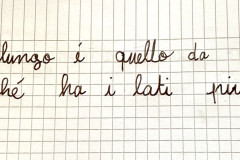 lungo é quello da
hé ha i lati piú